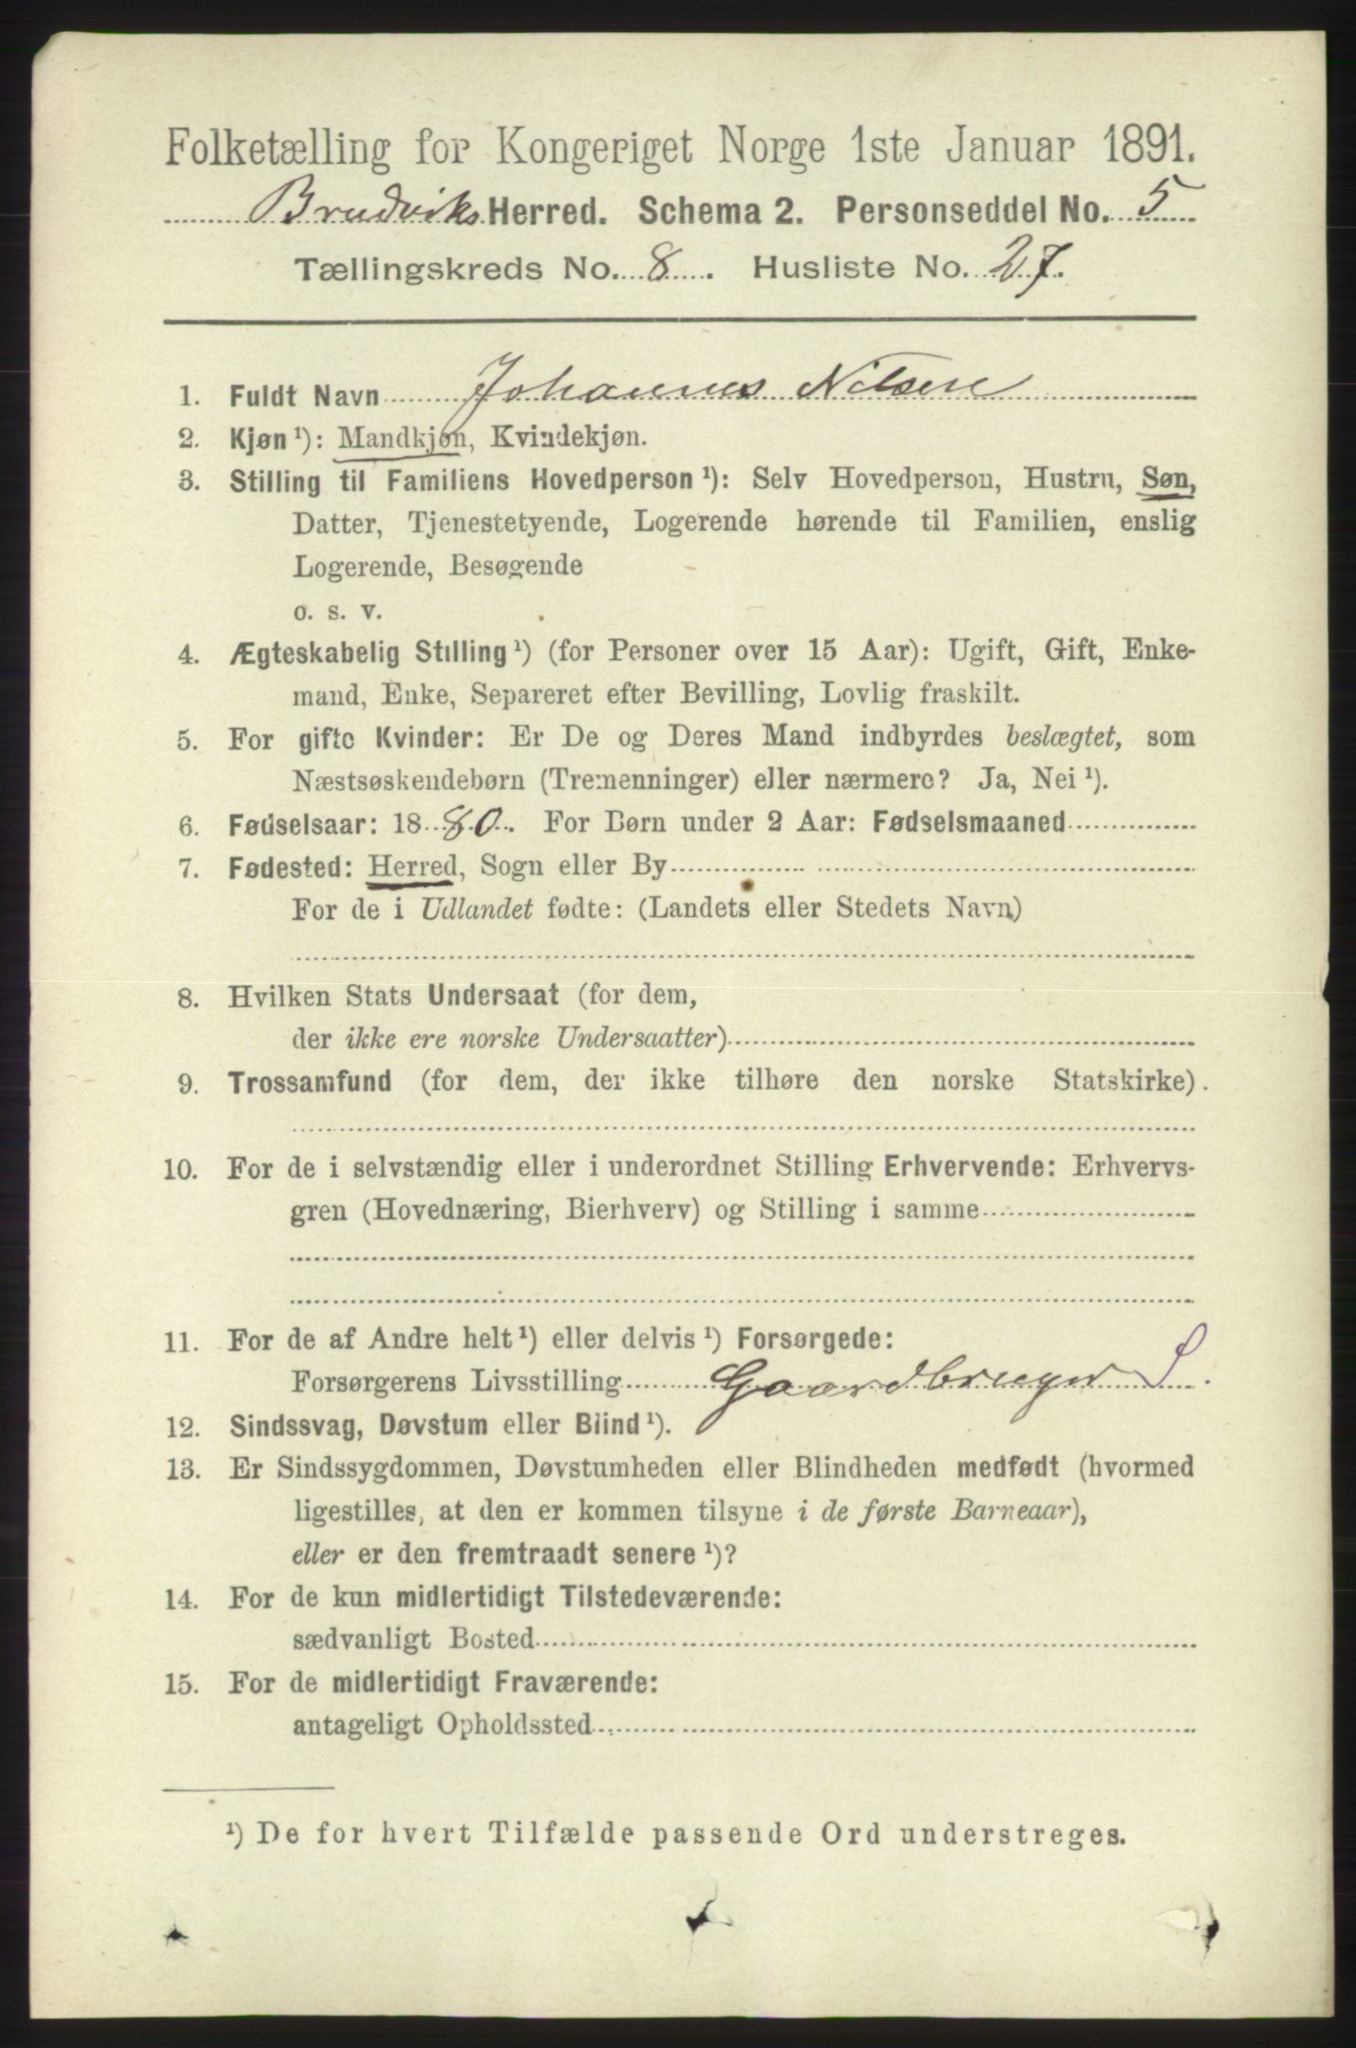 Folketælling for Kongeriget Norge 1ste Januar 1891.
Brudviks Herred. Schema 2. Personseddel No. 5
Tællingskreds No. 8. Husliste No. 27.
1. Fuldt Navn Johannes Nilsen
2. Kjøn ¹): Mandkjøn, Kvindekjøn.
3. Stilling til Familiens Hovedperson ¹): Selv Hovedperson, Hustru, Søn,
Datter, Tjenestetyende, Logerende hørende til Familien, enslig
Logerende, Besøgende
o. s. v.
4. Ægteskabelig Stilling ¹) (for Personer over 15 Aar): Ugift, Gift, Enke-
mand, Enke, Separeret efter Bevilling, Lovlig fraskilt.
5. For gifte Kvinder: Er De og Deres Mand indbyrdes beslægtet, som
Næstsøskendebørn (Tremenninger) eller nærmere? Ja, Nei ¹).
6. Fødselsaar: 1880. For Børn under 2 Aar: Fødselsmaaned
7. Fødested: Herred, Sogn eller By
For de i Udlandet fødte: (Landets eller Stedets Navn)
8. Hvilken Stats Undersaat (for dem,
der ikke ere norske Undersaatter)
9. Trossamfund (for dem, der ikke tilhøre den norske Statskirke).
10. For de i selvstændig eller i underordnet Stilling Erhvervende: Erhvervs-
gren (Hovednæring, Bierhverv) og Stilling i samme
11. For de af Andre helt ¹) eller delvis ¹) Forsørgede:
Forsørgerens Livsstilling Gaardbruger S.
12. Sindssvag, Døvstum eller Blind ¹).
13. Er Sindssygdommen, Døvstumheden eller Blindheden medfødt (hvormed
ligestilles, at den er kommen tilsyne i de første Barneaar),
eller er den fremtraadt senere ¹)?
14. For de kun midlertidigt Tilstedeværende:
sædvanligt Bosted
15. For de midlertidigt Fraværende:
antageligt Opholdssted
¹) De for hvert Tilfælde passende Ord understreges.